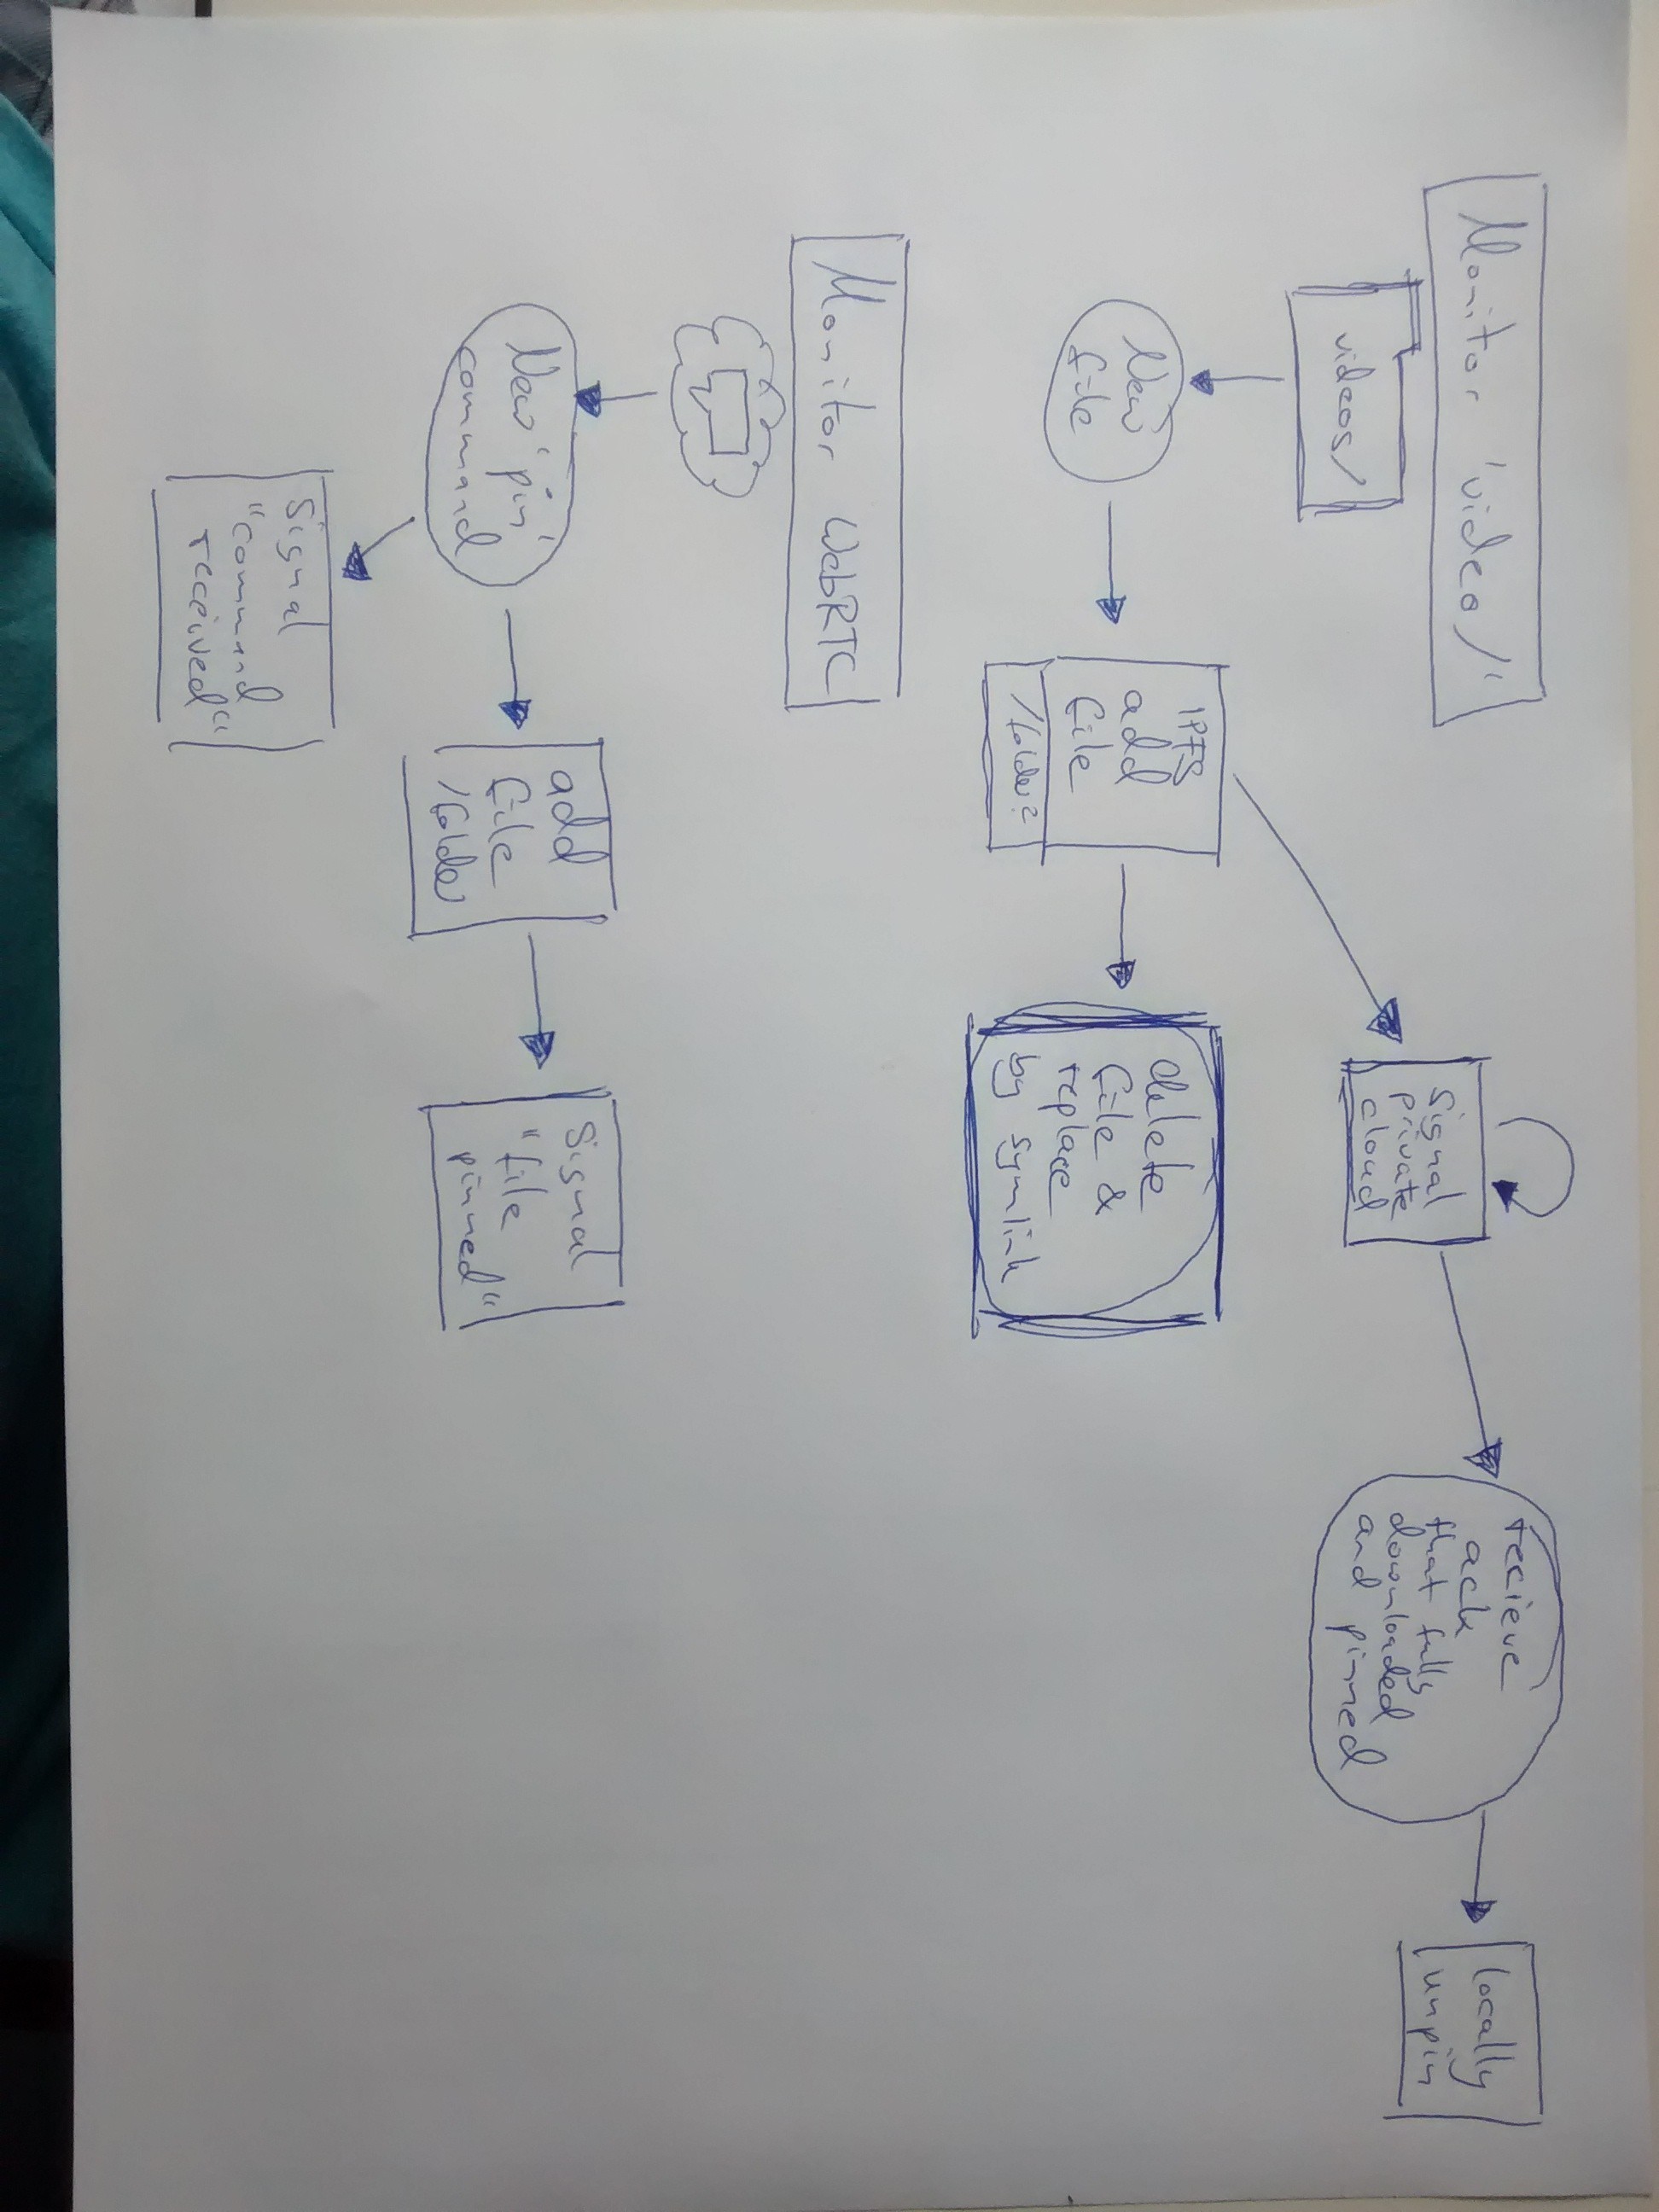 Monitor 'video/'
videos/
New
file
IPFS
add
file
/folder?
signal
private
cloud
recieve
ack
that fully
downloaded
and pinned
locally
unpin
delete
file &
replace
by symlink
Monitor WebRTC
New 'pin'
command
add
file
/folder
Signal
"file
pinned"
Signal
"command
received"